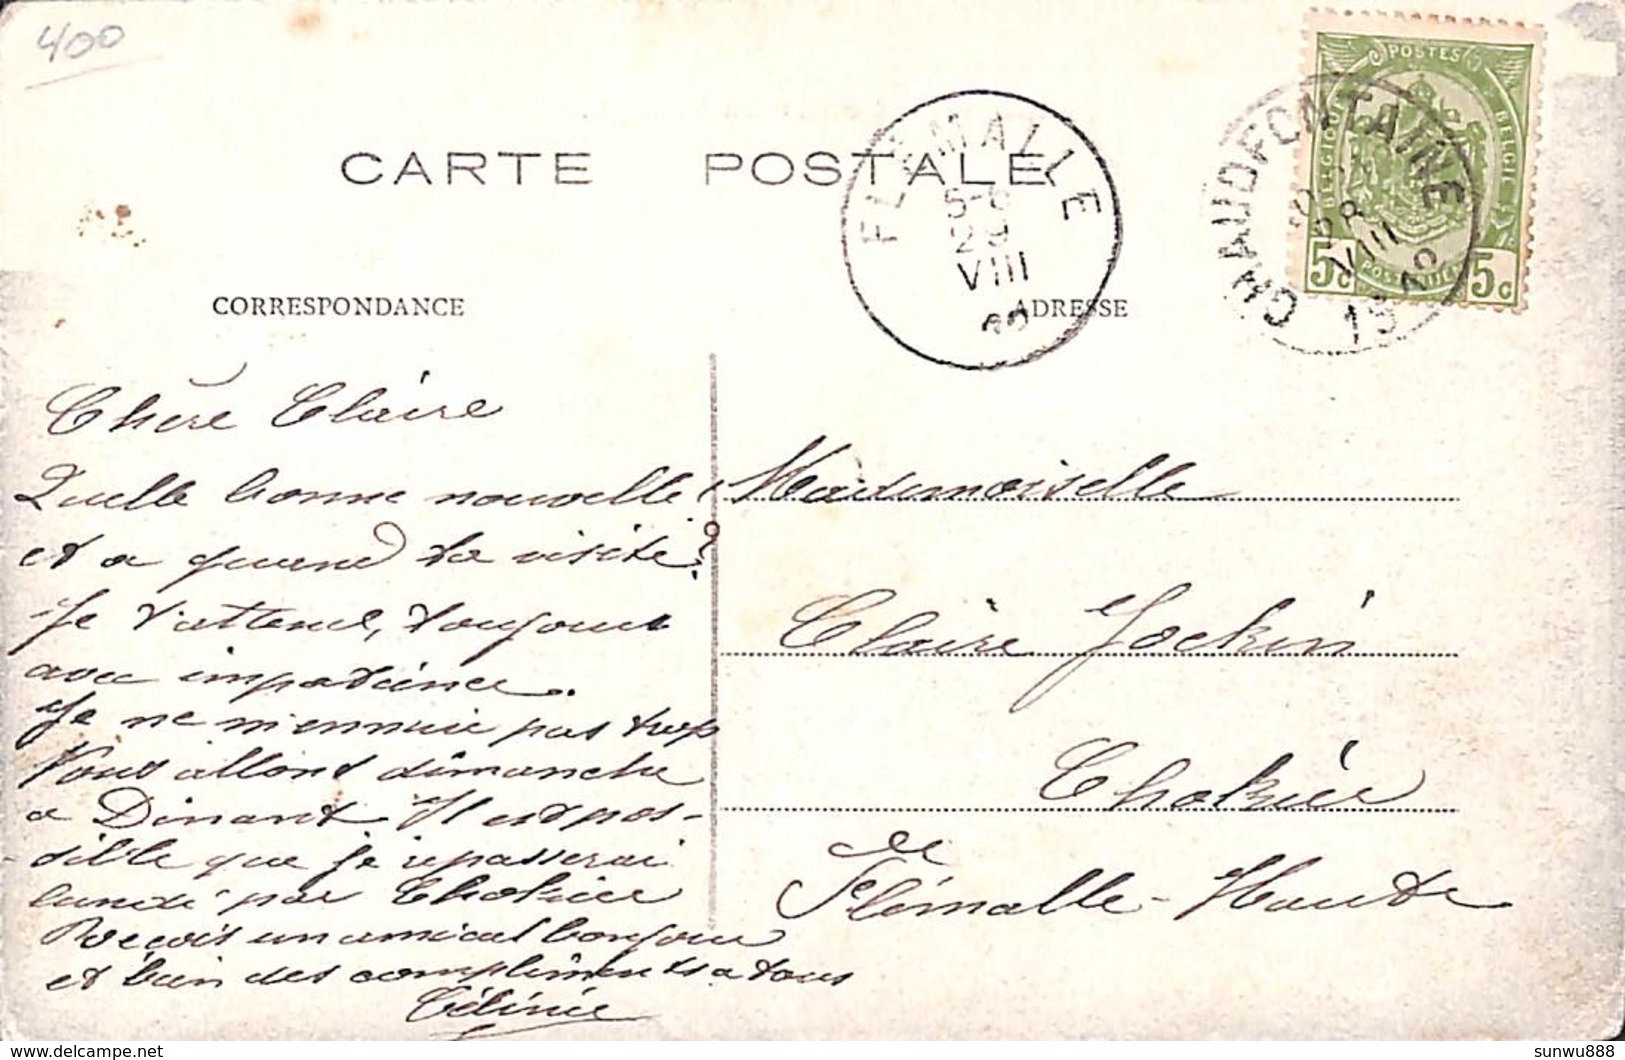 400
CARTE POSTALE
FLEMALLE
5-6
29
VIII
POSTES
BELGIQUE
BELGIË
5c
5c
CHAUDFONTAINE
28
VIII
1912
CORRESPONDANCE
ADRESSE
Chère Claire
Quelle bonne nouvelle!
et a quand ta visite?
Je t'attend, toujours
avec impatience.
Je ne m'ennuie pas trop
Nous allons dimanche
a Dinant Il est pos-
sible que je repasserai
lundi par Chokier
Reçois un amical bonjour
et bien des compliments a tous
Céline
Mademoiselle
Claire Jockin
Chokier
Flémalle-Haute
sunwu888